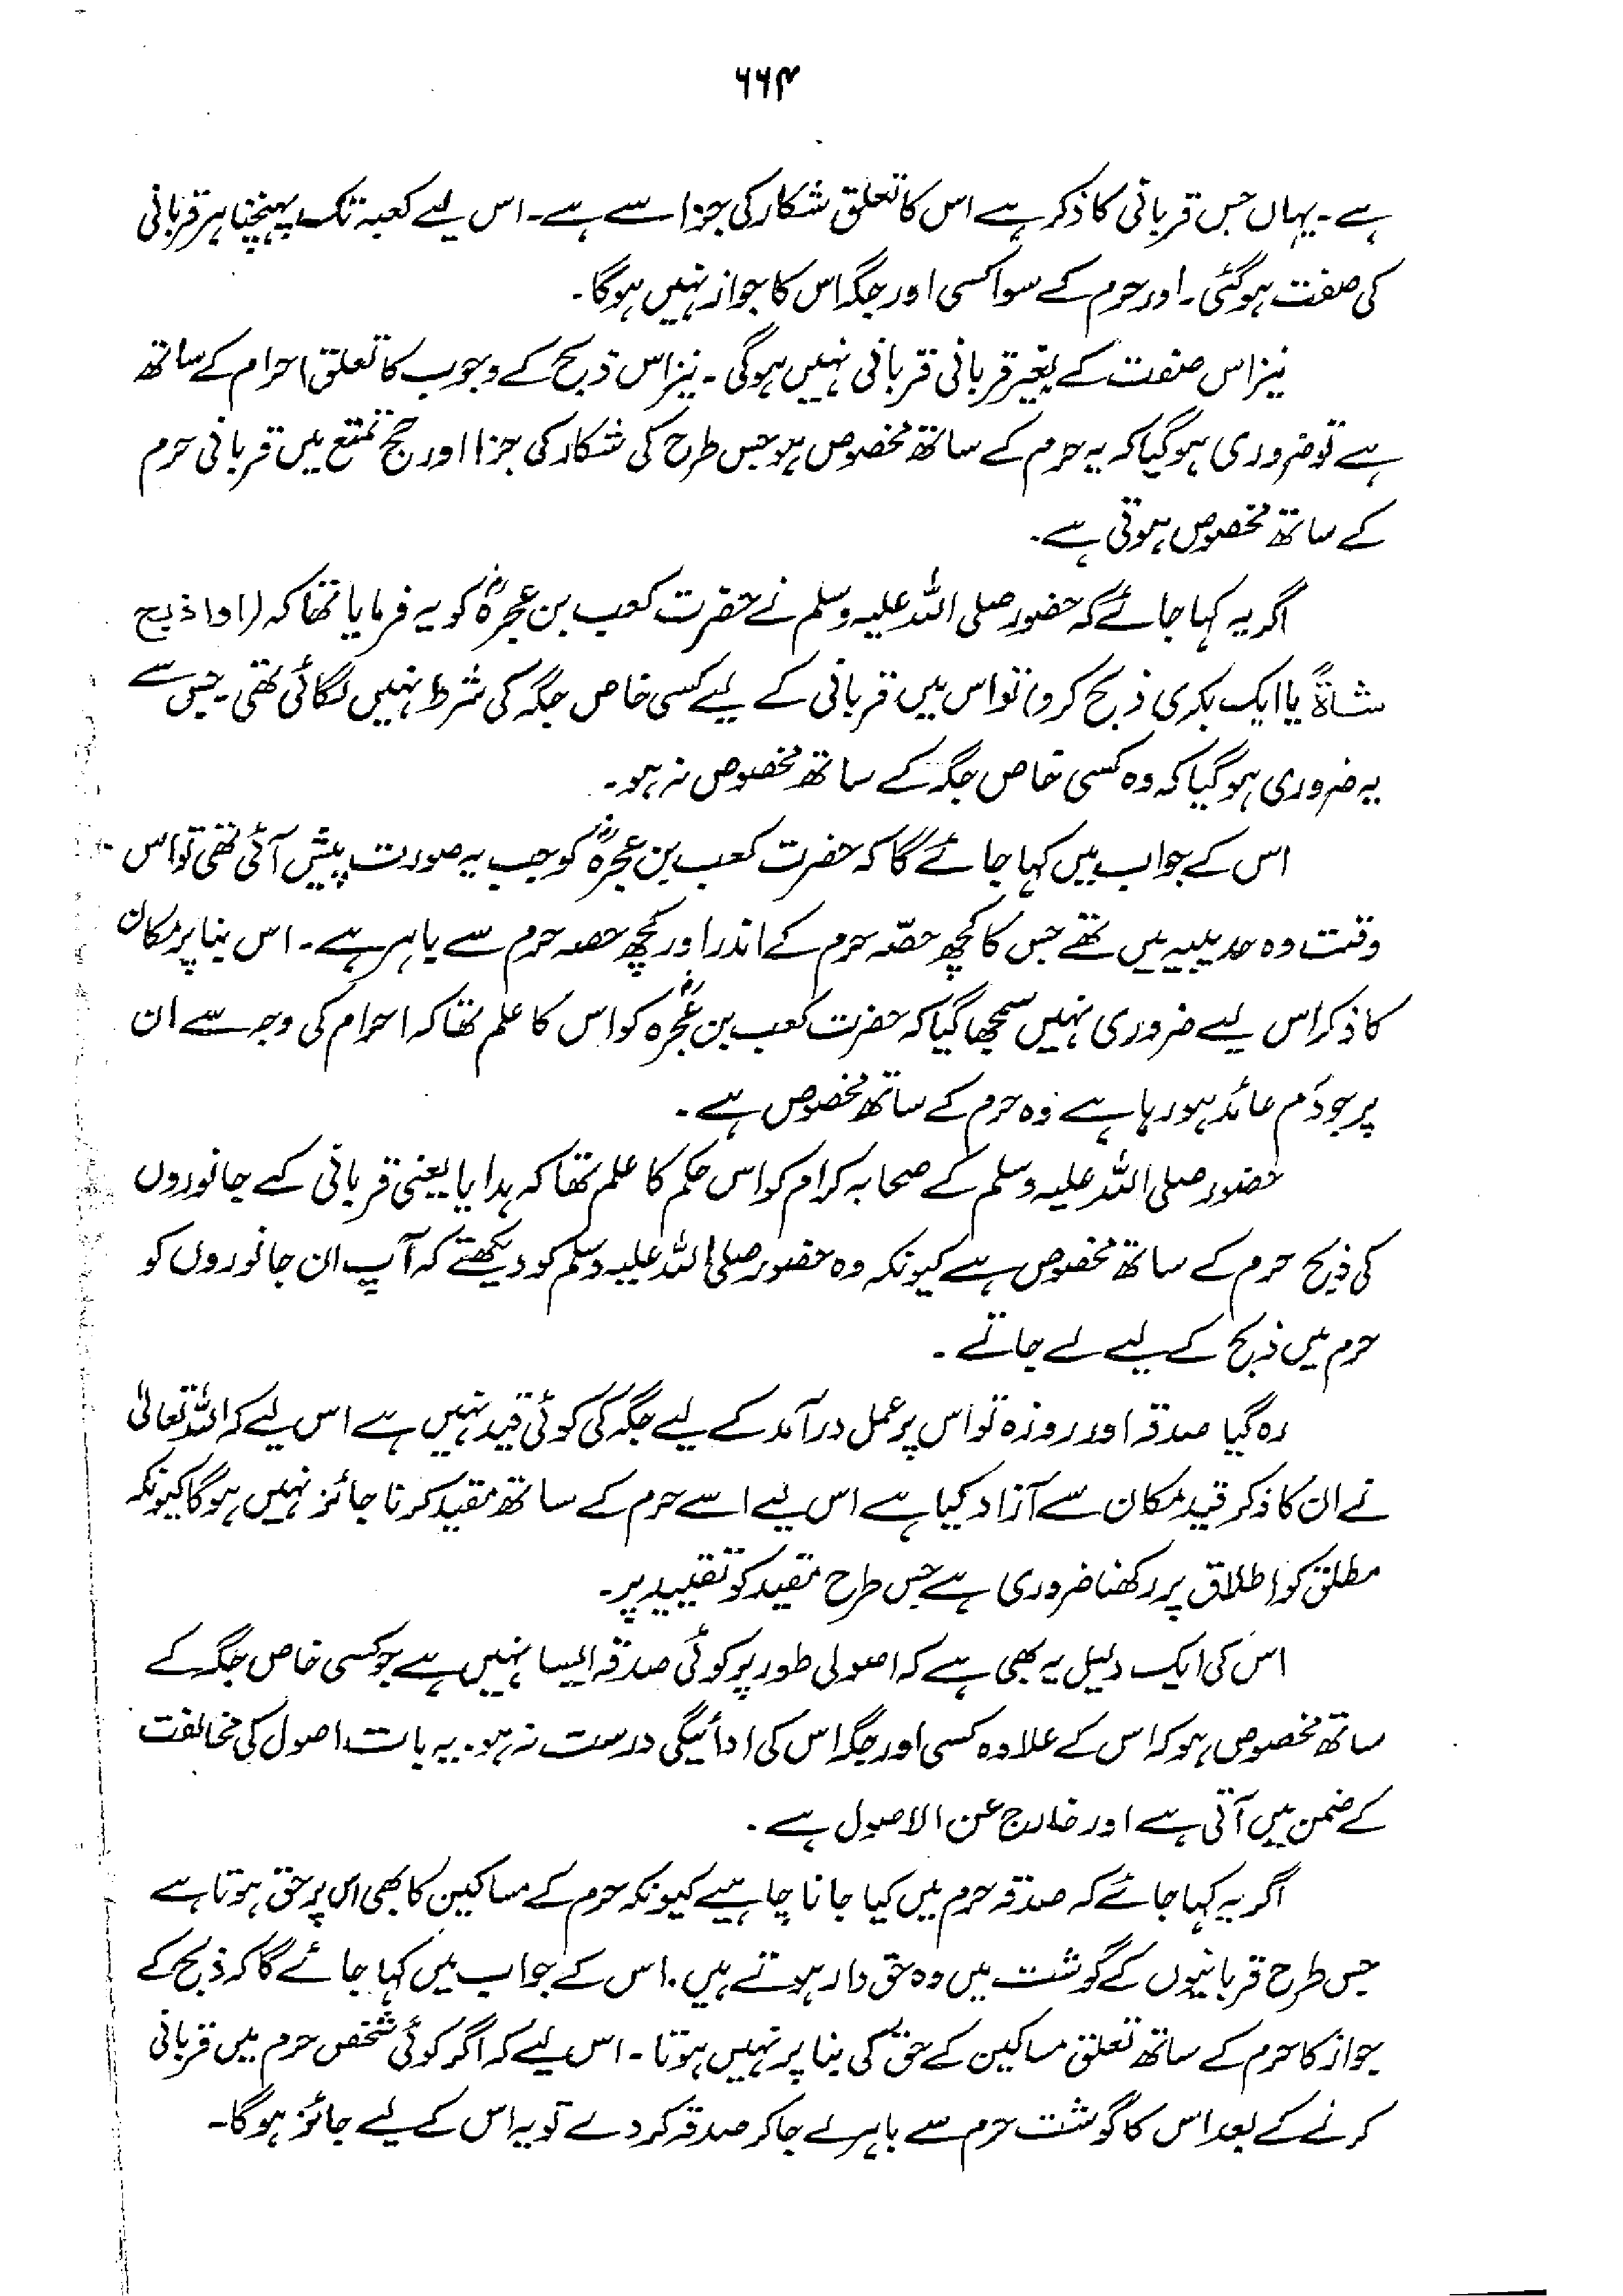 ۶۶۴
ہے۔ یہاں جس قربانی کا ذکر ہے اس کا تعلق شکار کی جزا سے ہے۔ اس لیے کعبہ تک پہنچنا ہر قربانی
کی صفت ہوگئی۔ اور حرم کے سوا کسی اور جگہ اس کا جواز نہیں ہوگا۔
نیز اس صفت کے بغیر قربانی قربانی نہیں ہوگی۔ نیز اس ذبح کے وجوب کا تعلق احرام کے ساتھ
ہے تو ضروری ہوگیا کہ یہ حرم کے ساتھ مخصوص ہو جس طرح کی شکار کی جزا اور حج تمتع میں قربانی حرم
کے ساتھ مخصوص ہوتی ہے۔
اگر یہ کہا جائے کہ حضور صلی اللہ علیہ وسلم نے حضرت کعب بن عجرہؓ کو یہ فرمایا تھا کہ (او اذبح
شاۃً یا ایک بکری ذبح کرو) تو اس میں قربانی کے لیے کسی خاص جگہ کی شرط نہیں لگائی تھی۔ جس سے
یہ ضروری ہوگیا کہ وہ کسی خاص جگہ کے ساتھ مخصوص نہ ہو۔
اس کے جواب میں کہا جائے گا کہ حضرت کعب بن عجرہؓ کو جب یہ صورت پیش آئی تھی تو اس
وقت وہ حدیبیہ میں تھے جس کا کچھ حصّہ حرم کے اندر اور کچھ حصہ حرم سے باہر ہے۔ اس بنا پر مکان
کا ذکر اس لیے ضروری نہیں سمجھا گیا کہ حضرت کعب بن عجرہؓ کو اس کا علم تھا کہ احرام کی وجہ سے ان
پر جو دَم عائد ہو رہا ہے وہ حرم کے ساتھ مخصوص ہے۔
حضور صلی اللہ علیہ وسلم کے صحابہ کرام کو اس حکم کا علم تھا کہ ہدایا یعنی قربانی کے جانوروں
کی ذبح حرم کے ساتھ مخصوص ہے کیونکہ وہ حضور صلی اللہ علیہ وسلم کو دیکھتے کہ آپ ان جانوروں کو
حرم میں ذبح کے لیے لے جاتے۔
رہ گیا صدقہ اور روزہ تو اس پر عمل درآمد کے لیے جگہ کی کوئی قید نہیں ہے اس لیے کہ اللہ تعالیٰ
نے ان کا ذکر قید مکان سے آزاد کیا ہے اس لیے اسے حرم کے ساتھ مقید کرنا جائز نہیں ہوگا کیونکہ
مطلق کو اطلاق پر رکھنا ضروری ہے جس طرح مقید کو تقیید پر۔
اس کی ایک دلیل یہ بھی ہے کہ اصولی طور پر کوئی صدقہ ایسا نہیں ہے جو کسی خاص جگہ کے
ساتھ مخصوص ہو کہ اس کے علاوہ کسی اور جگہ اس کی ادائیگی درست نہ ہو۔ یہ بات اصول کی مخالفت
کے ضمن میں آتی ہے اور خارج عن الاصول ہے۔
اگر یہ کہا جائے کہ صدقہ حرم میں کیا جانا چاہیے کیونکہ حرم کے مساکین کا بھی اس پر حق ہوتا ہے
جس طرح قربانیوں کے گوشت میں وہ حق دار ہوتے ہیں۔ اس کے جواب میں کہا جائے گا کہ ذبح کے
جواز کا حرم کے ساتھ تعلق مساکین کے حق کی بنا پر نہیں ہوتا۔ اس لیے کہ اگر کوئی شخص حرم میں قربانی
کرنے کے بعد اس کا گوشت حرم سے باہر لے جا کر صدقہ کردے تو یہ اس کے لیے جائز ہوگا۔